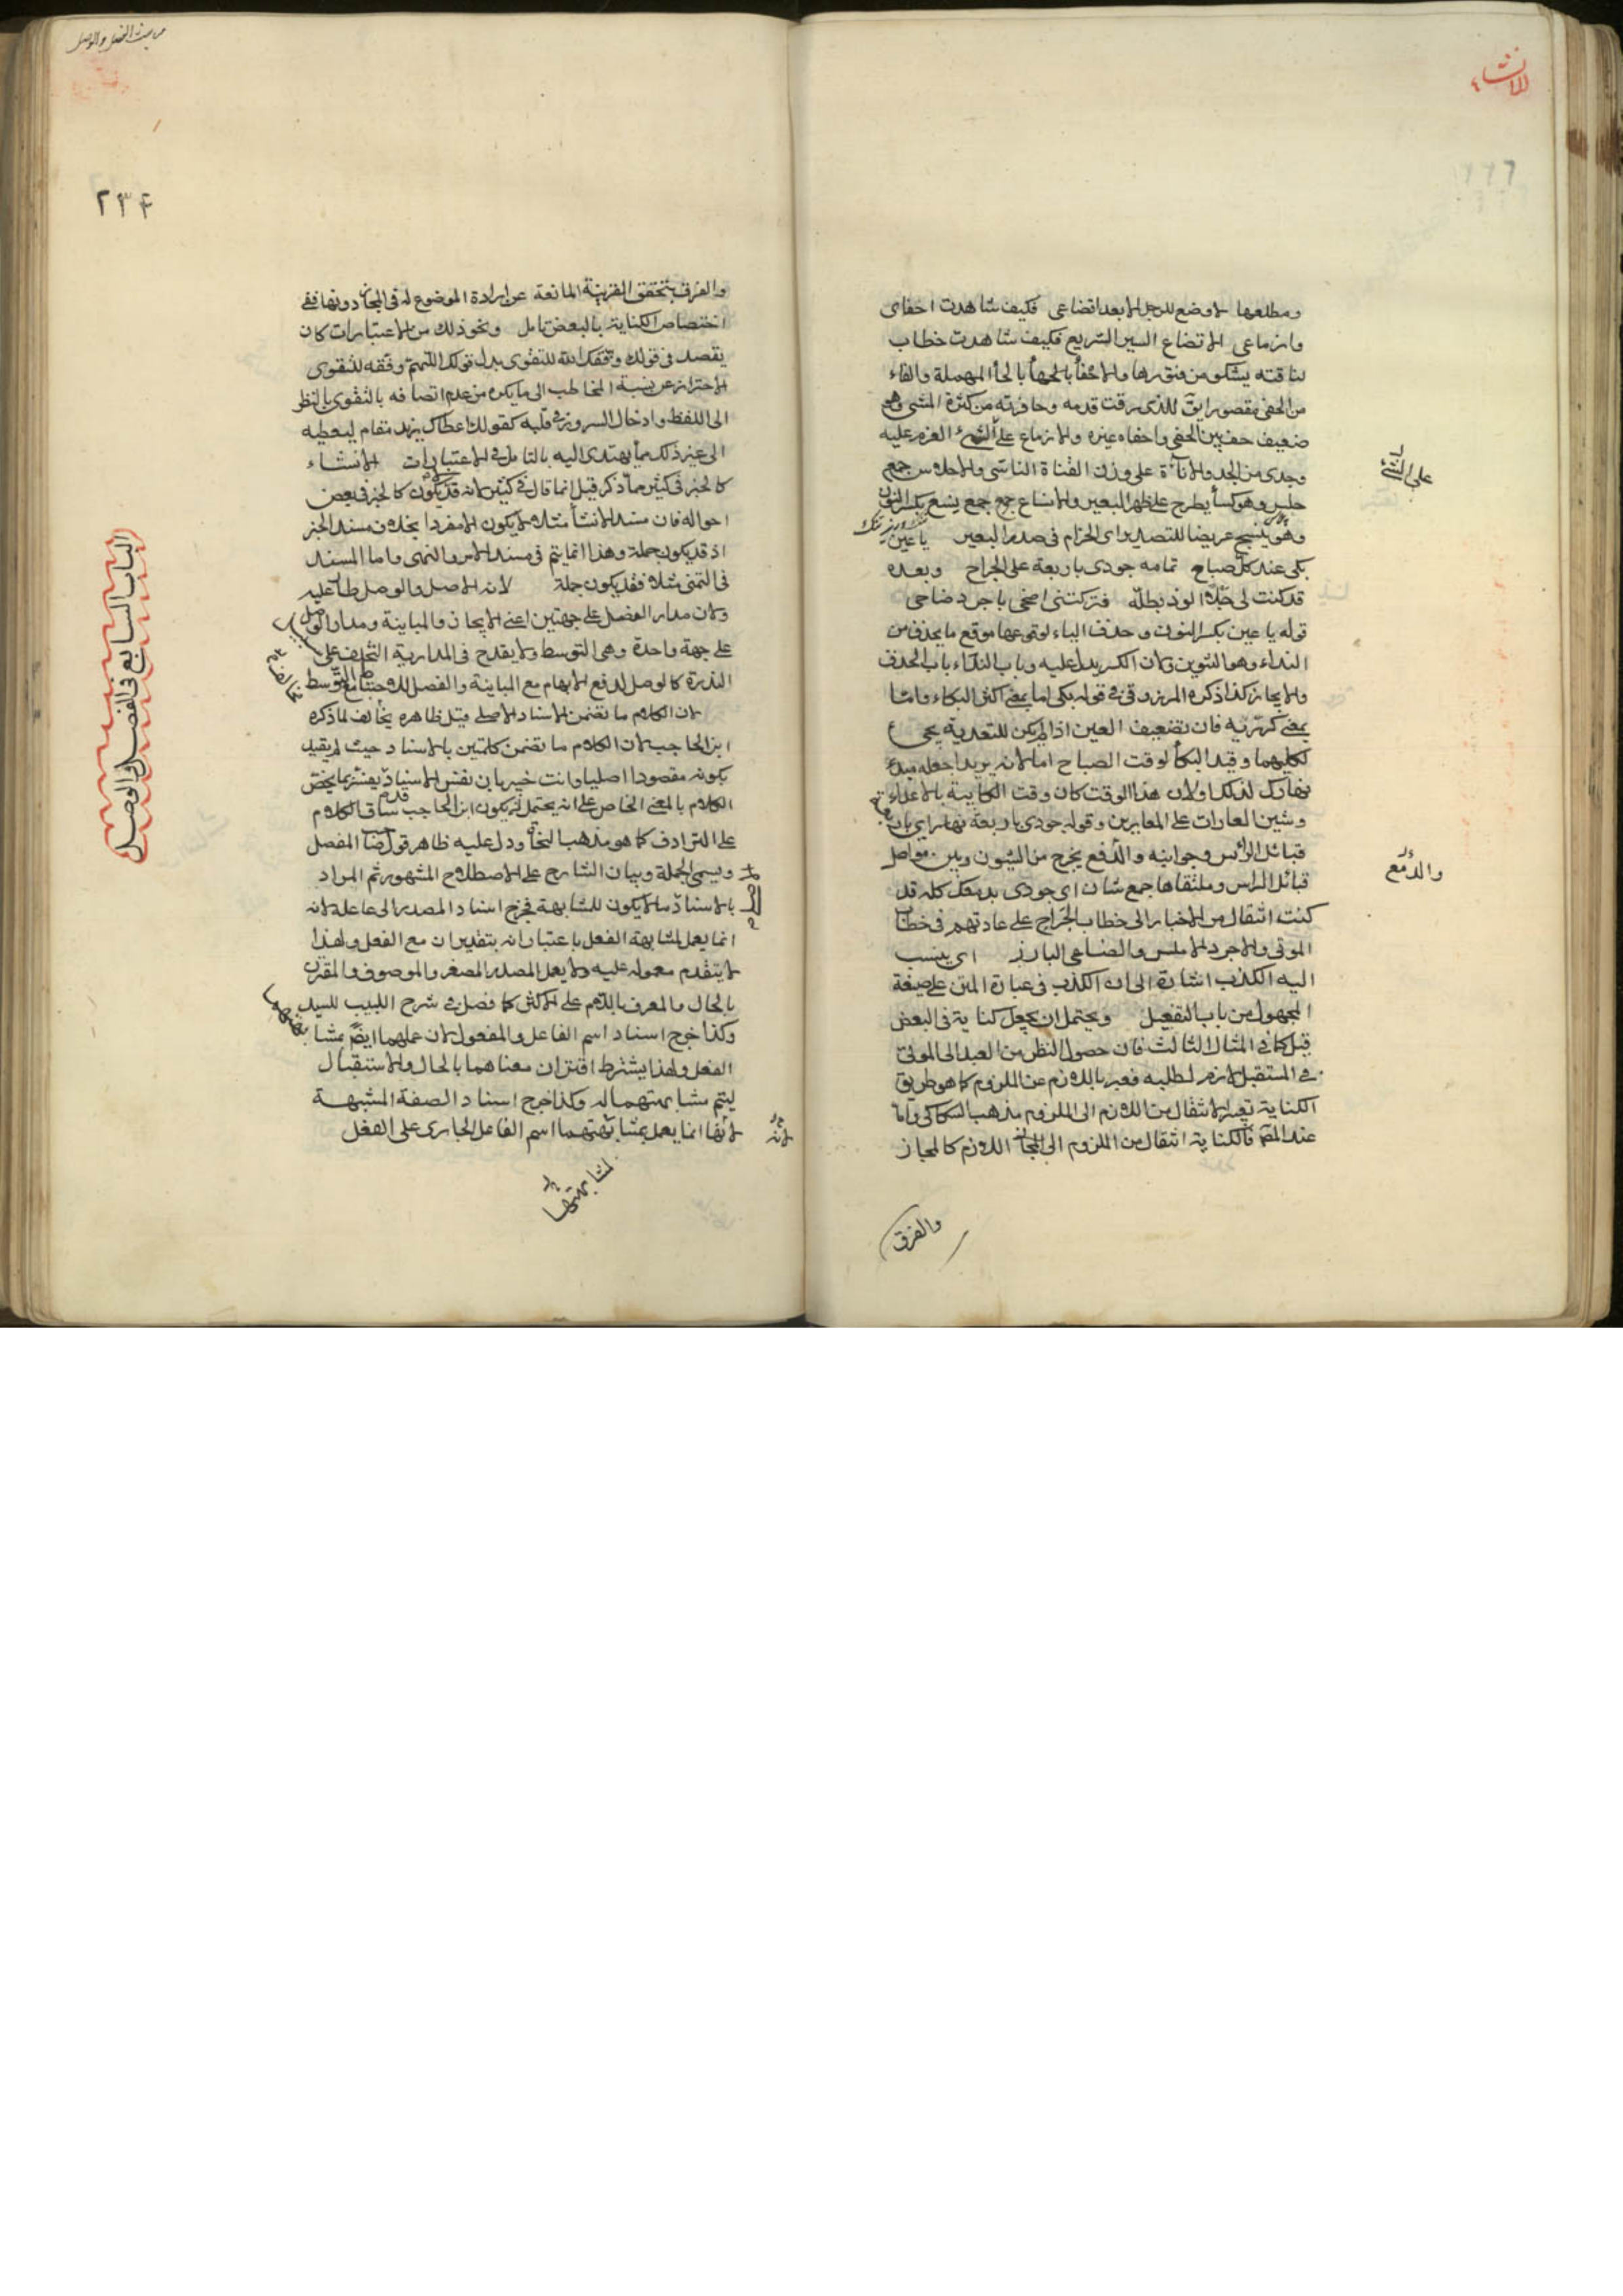 الانشاء
ومطلعها لا وضع للرحل الا بعد ايضاعي فكيف شاهدت احفاى
وازماعي الاتضاع السير السريع فكيف شاهدت خطاب
لناقته يشكو من والاحفأ بالحاء المهملة والفاء
من الحفى مقصورا يق للذى رقت قدمه وحافرته من كثرة المشى وهو
ضعيف حف بين الحفى واحفاه غيره والازماع على الشئ العزم عليه
على الشئ
وجدى من الجد والاناة على وزن القناة الناسى والاحلاس جمع
حلس وهو كساء يطرح على ظهر البعير والانساع جمع جمع نسع بكسر النون
وهو ينسج عريضا للتصدير اى الحزام فى صدر البعير يا عين
بكى عند كل صباح تمامه جودى باربعة على الجراح وبعده
قد كنت لى جبلا الوذ بظله فتركتنى اضحى باجرد ضاحى
قوله يا عين بكسر النون وحذف الياء لوقوعها موقع ما يحذف من
النداء وهو التنوين ولان الكسر يدل عليه وباب النداء باب الحذف
والايجاز كذا ذكره المرزوقى فى قوله بكى اما بمعنى اكثرى البكاء واما
بمعنى كررية فان تضعيف العين اذا لم يكن للتعدية يجىء
لكليهما وقيد البكأ لوقت الصباح اما لانه يريد اجعله مبدء
نهارك لذلك اولان هذا الوقت كان وقت الكايبة بالاعداء
وشن الغارات على المعايرين وقوله جودى باربعة نهار اى بان
قبائل الراس وجوانبه والدمع يخرج من الشئون وبين مواصل
والدمع
قبائل الراس وملتقاها جمع شان اى جودى بدمعك كله قد
كنت انتقال من الاخبار الى خطاب الجراح على عادتهم فى خطاب
الموتى والاجرد الاملس والضاحى البارز اى ينسب
اليه الكذب اشارة الى ان الكذب فى عبارة المتن على صيغة
المجهول من باب التفعيل ويحتمل ان يجعل كناية فى البعض
قيل كما فى المثال الثالث فان حصول النظر من العبد الى المولى
فى المستقبل لازم لطلبه فعبر باللازم عن الملزوم كما هو طريق
الكناية تعبير الانتقال من اللازم الى الملزوم مذهب السكاكى واما
عند المص فالكناية انتقال من الملزوم الى اللازم كالمجاز
والفرق
من بحث الفصل والوصل
٢٣٤
والفرق بتحقق القرينة المانعة عن ارادة الموضوع له فى المجاز دونها ففى
اختصاص الكناية بالبعض تامل ونحو ذلك من الاعتبارات كان
يقصد فى قولك وفقك الله للتقوى بدل قولك اللهم وفقه للتقوى
الاحتراز عن نسبة المخاطب الى ما يكره من عدم اتصافه بالتقوى بالنظر
الى اللفظ وادخال السرور فى قلبه كقولك اعطاك يزيد مقام ليعطيه
الى غير ذلك مما يهتدى اليه بالتامل فى الاعتبارات الانشاء
كالخبر فى كثير مما ذكر قيل انما قال فى كثير لانه قد يكون كالخبر فى بعض
احواله فان مسند الانشأ مثلا لا يكون الا مفردا بخلاف مسند الخبر
اذ قد يكون جملة وهذا انما يتم فى مسند الامر والنهى واما المسند
فى التمنى مثلا فقد يكون جملة لانه الاصل والوصل طار عليه
ولان مدار الفصل على جهتين اعنى الايجاز والمباينة ومدار الوصل
على جهة واحدة وهى التوسط ولا يقدح فى المدارية التخلف على
الندرة كالوصل لدفع الايهام مع المباينة والفصل للاحتياط مع التوسط
الباب السابع فى الفصل والوصل
لان الكلام ما تضمن الاسناد الاصلى قيل ظاهره يخالف لما ذكره
ابن الحاجب لان الكلام ما تضمن كلمتين بالاسناد حيث لم يقيد
بكونه مقصودا اصليا وانت خبير بان نفس الاسناد يفسر بما يخص
الكلام بالمعنى الخاص على انه يحتمل ان يكون ابن الحاجب قدم ساق الكلام
على الترادف كما هو مذهب النحاة ودل عليه ظاهر قول صا المفصل
ويسمى الجملة وبيان الشارح على الاصطلاح المشهور ثم المراد
بالاسناد ما لا يكون للمشابهة فخرج اسناد المصدر الى فاعله لانه
انما يعمل لمشابهة الفعل باعتبار انه بتقدير ان مع الفعل ولهذا
لا يتقدم معموله عليه ولا يعمل المصدر المصغر والموصوف والمقرن
بالحال والمعرف باللام على الاكثر كما فصل فى شرح اللبيب للسيد
وكذا خرج اسناد اسم الفاعل والمفعول لان عملهما ايضا بمشا
الفعل ولهذا يشترط اقتران معناهما بالحال والاستقبال
ليتم مشابهتهما له وكذا خرج اسناد الصفة المشبهة
لانها انما يعمل بمشابهتهما اسم الفاعل الجارى على الفعل
لمشابهتها